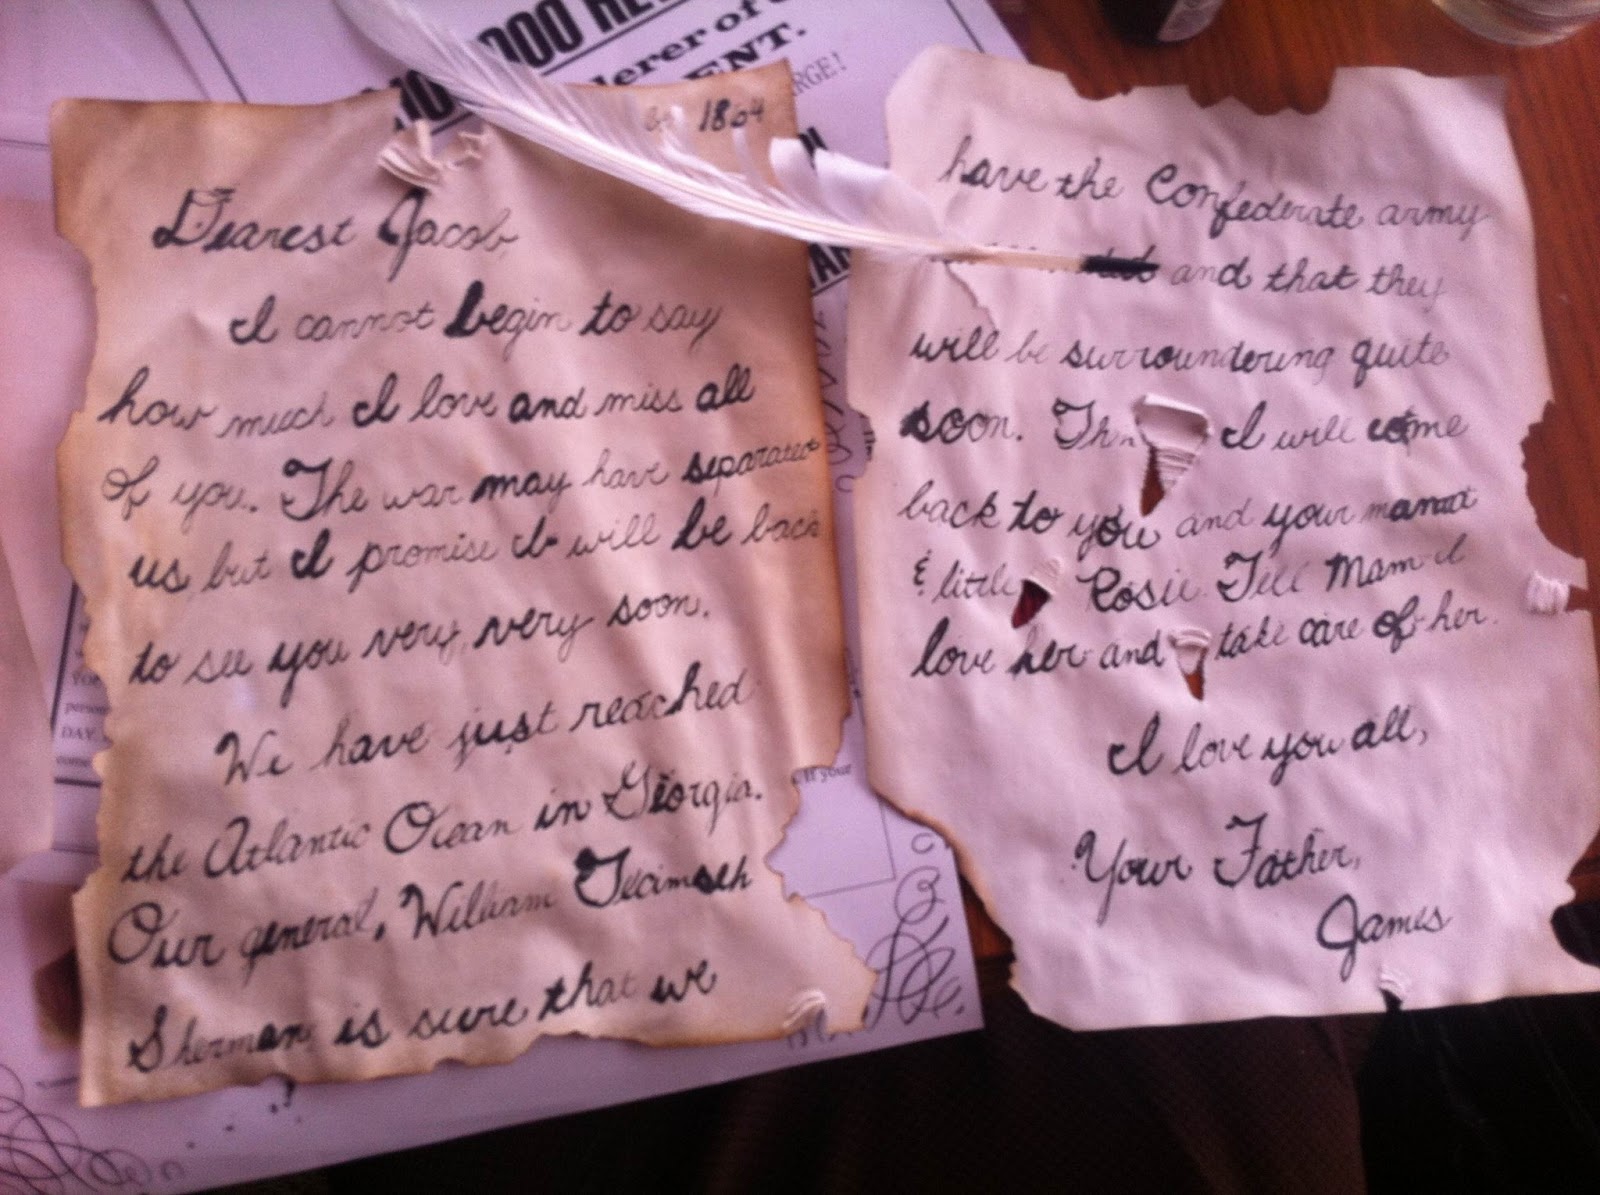 1864
Dearest Jacob,
I cannot begin to say
how much I love and miss all
of you. The war may have separated
us but I promise I will be back
to see you very, very soon.
We have just reached
the Atlantic Ocean in Georgia.
Our general, William Tecimseh
Sherman is sure that we
have the Confederate army
and that they
will be surroundering quite
soon. I will come
back to you and your mama
& little Rosie. Tell Mam I
love her and take care of her.
I love you all,
Your Father,
James
000
derer of
ENT.
RGE!
If your
DAY